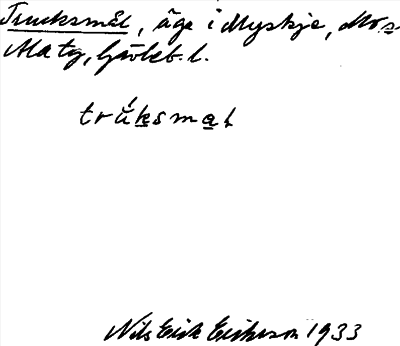 Trucksmål, äga i Myskje, Mo s
Ma ty, Gävleb. l.
trúksmaḷ
Nils Erik Eriksson 1933